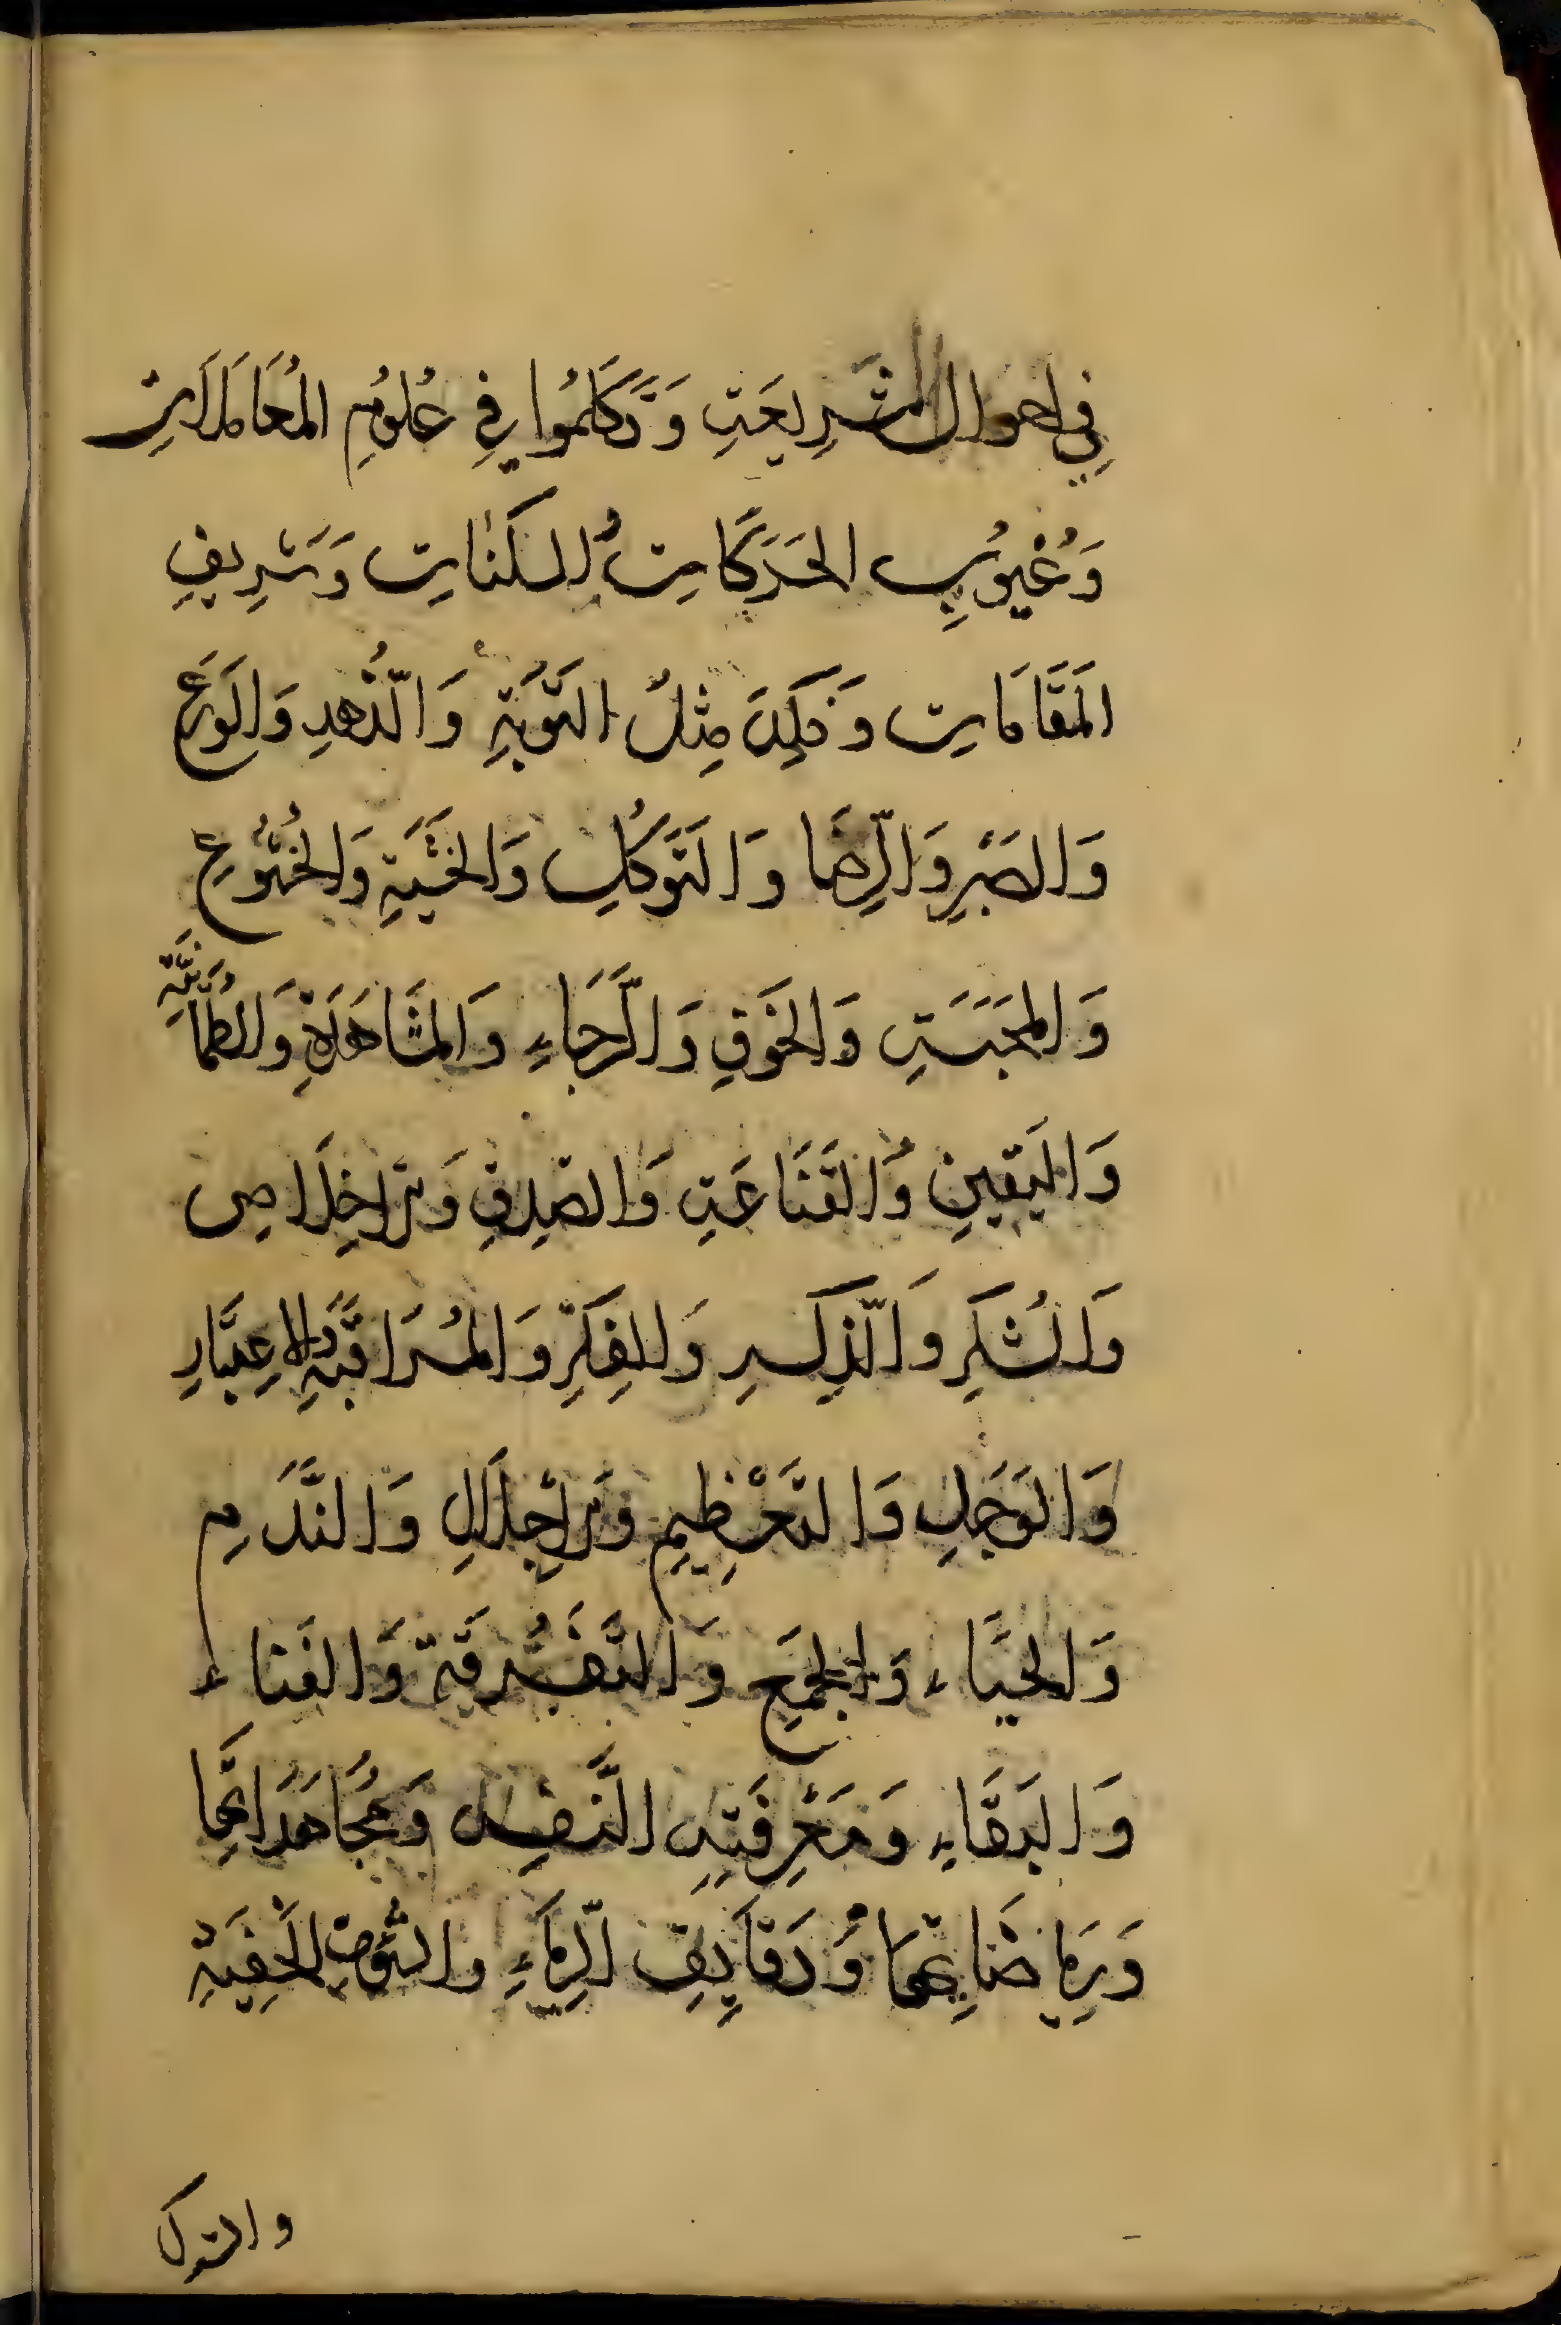 فِي احوال الشَرِيعَتِ وَتَكَلَمُوا فِي عُلُومِ المُعَامَلَاتِ
وَعُيُوبِ الحَرَكَاتِ وَالسَكَنَاتِ وَشَرِيفِ
المَقَامَاتِ وَذَلِكَ مِثلُ التَوبَةِ وَالزُهدِ وَالوَرَعِ
وَالصَبْرِ وَالرِّضَا وَالتَوَكُلِ وَالخَشيَةِ وَالخُشُوعِ
وَالمحَبَّتِ وَالخَوفِ وَالرَّجَاءِ وَالمشَاهَدَةِ وَالطُمَأنِينَةِ
وَاليَقِينِ وَالقَنَاعَتِ وَالصِّدقِ وَالاِخلَاصِ
وَالشُكرِ وَالذِّكرِ وَالفِكرِ وَالمُرَاقَبَةِ وَالاعِتبَارِ
وَالوَجَلِ وَالتَعْظِيمِ وَالاِجْلَالِ وَالنَّدَمِ
وَالحيَاءِ وَالجَمعِ وَالتَفرِقَةِ وَالفَناءِ
وَالبَقَاءِ وَمَعْرِفَتِهِ النَّفسِ وَمُجَاهَدَاتِهَا
وَرِيَاضَاتِهَا وَدَقَايِقِ الرِّيَاءِ وَالشَّهوةِ الخَفِيَةِ
والشرك